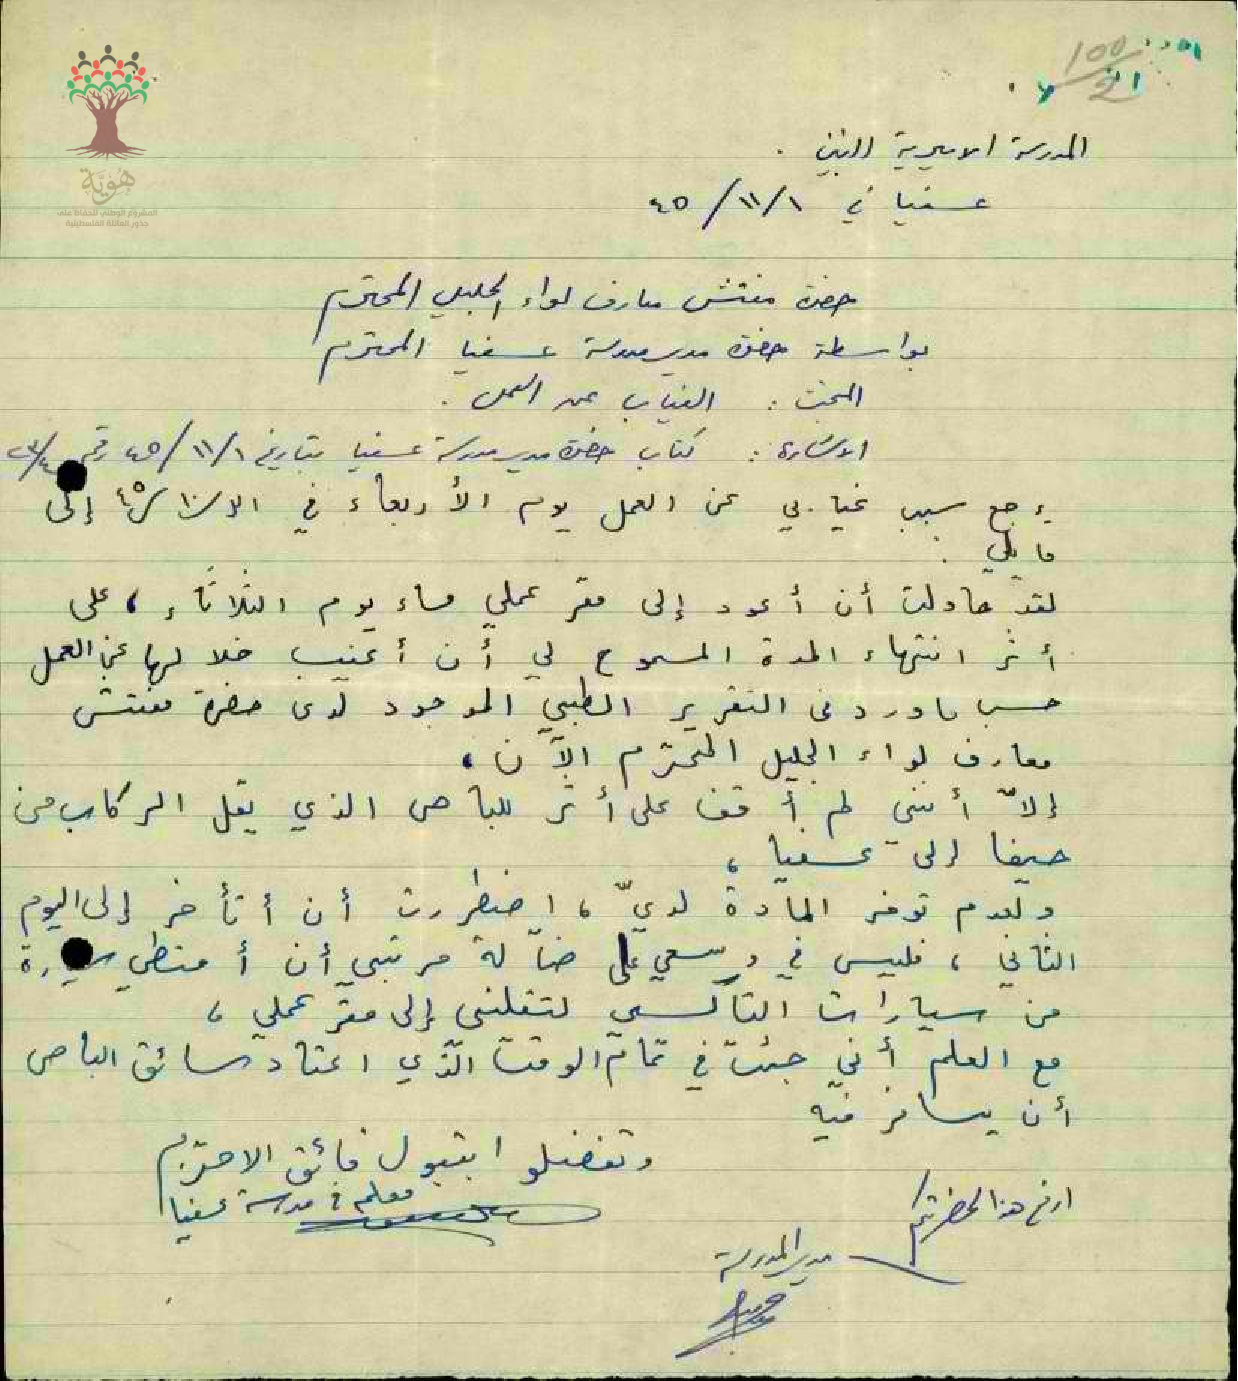 100
2
هُويّة
المشروع الوطني للحفاظ على
جذور العائلة الفلسطينية
المدرسة الاميرية للبنين .
عسفيا في ١/١١/٤٥
حضرة مفتش معارف لواء الجليل المحترم
بواسطة حضرة مدير مدرسة عسفيا المحترم
البحث : الغياب عن العمل .
الاشارة : كتاب حضرة مدير مدرسة عسفيا بتاريخ ١/١١/٤٥ رقم
يرجع سبب غيابي عن العمل يوم الأربعاء في ال ٣١/١٠/٤٥ إلى
ما يلي .
لقد حاولت أن أعود إلى مقر عملي مساء يوم الثلاثاء ، على
أثر انتهاء المدة المسموح لي أن أغيب خلالها عن العمل
حسب ما ورد في التقرير الطبي الموجود لدى حضرة مفتش
معارف لواء الجليل المحترم الآن ،
إلاّ أنني لم أقف على أثر للباص الذي يقل الركاب من
حيفا إلى عسفيا ،
ولعدم توفر المادة لديّ ، اضطررت أن أتأخر إلى اليوم
الثاني ، فليس في وسعي على ضآلة مرتبي أن أمتطي سيارة
من سيارات التاكسي لتقلني إلى مقرّ عملي ،
مع العلم أني جئت في تمام الوقت الّذي اعتاد سائق الباص
أن يسافر فيه
وتفضلوا بقبول فائق الاحترام
معلم في مدرسة عسفيا
ارفع هذا لحضرتكم
مدير المدرسة